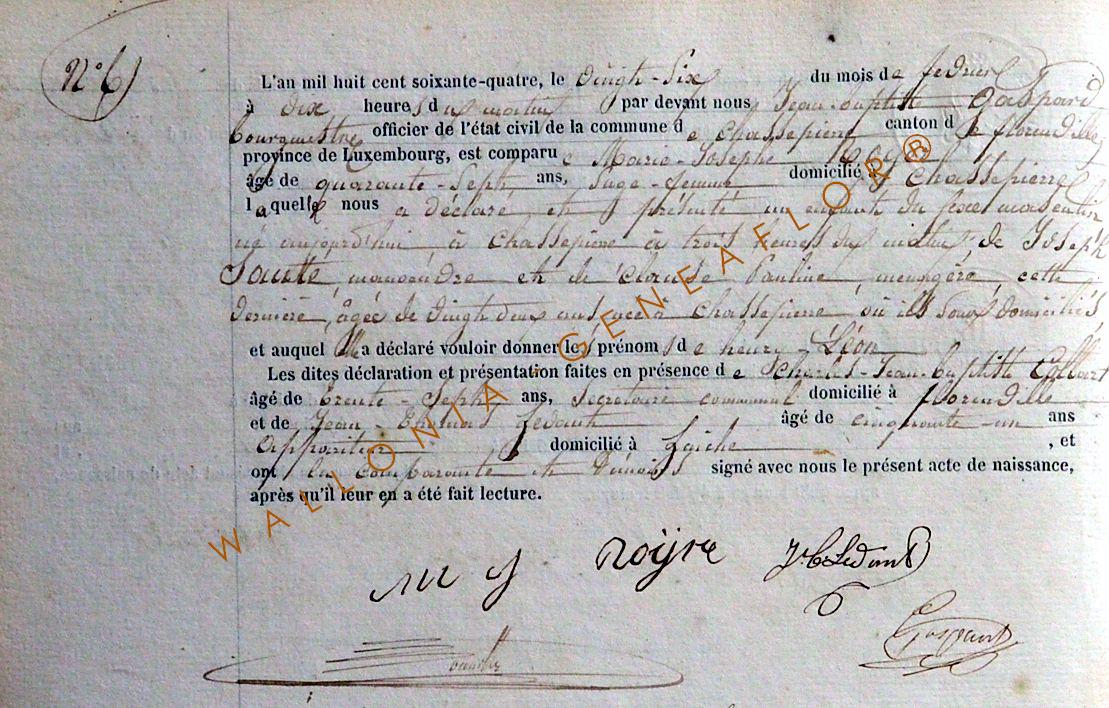 N° 6
L'an mil huit cent soixante-quatre, le vingt-six du mois de fevrier
à dix heures du matin par devant nous Jean-baptiste Gaspard
bourgmestre officier de l'état civil de la commune de Chassepierre canton de florenville
province de Luxembourg, est comparue Marie-Josephe
âgé de quarante-sept ans, sage-femme domicilié à Chassepierre
laquelle nous a déclaré et présenté un enfant du sexe masculin
né aujourd'hui à Chassepierre à trois heures du matin, de Joseph
manoeuvre et de Claude Pauline, menagère, cette
dernière, agée de vingt deux ans née à Chassepierre où ils sont domiciliés
et auquel elle a déclaré vouloir donner les prénoms de henry Léon
Les dites déclaration et présentation faites en présence de Charles-Jean-baptiste Collart
âgé de trente-sept ans, secretaire communal domicilié à florenville
et de Jean Ledant âgé de cinquante-un ans
Appariteur domicilié à Laiche , et
ont la comparante et témoins signé avec nous le présent acte de naissance,
après qu'il leur en a été fait lecture.
WALLONIA - GENEAFLOR ®
m j noijre
Ledant
Gaspard